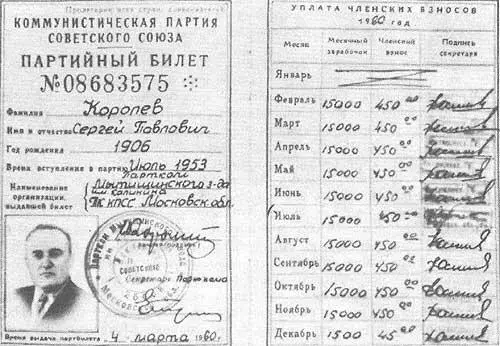 Пролетарии всех стран, соединяйтесь!
КОММУНИСТИЧЕСКАЯ ПАРТИЯ
СОВЕТСКОГО СОЮЗА
ПАРТИЙНЫЙ БИЛЕТ
№ 08683575
Фамилия Королев
Имя и отчество Сергей Павлович
Год рождения 1906
Время вступления в партию Июль 1953
Наименование организации, выдавшей билет
Парткой
Мытищинского з-да
им Калинина
ГК КПСС Московск. обл.
Секретарь Парткома
Время выдачи партбилета 4 марта 1960 г.
УПЛАТА ЧЛЕНСКИХ ВЗНОСОВ
1960 год
Месяц Месячный заработок Членский взнос Подпись секретаря
Январь
Февраль 15000 450 00
Март 15000 450 00
Апрель 15000 450 00
Май 15000 450 00
Июнь 15000 450 00
Июль 15000 450 00
Август 15000 450 00
Сентябрь 15000 450 00
Октябрь 15000 450 00
Ноябрь 15000 450 00
Декабрь 1500 45 00